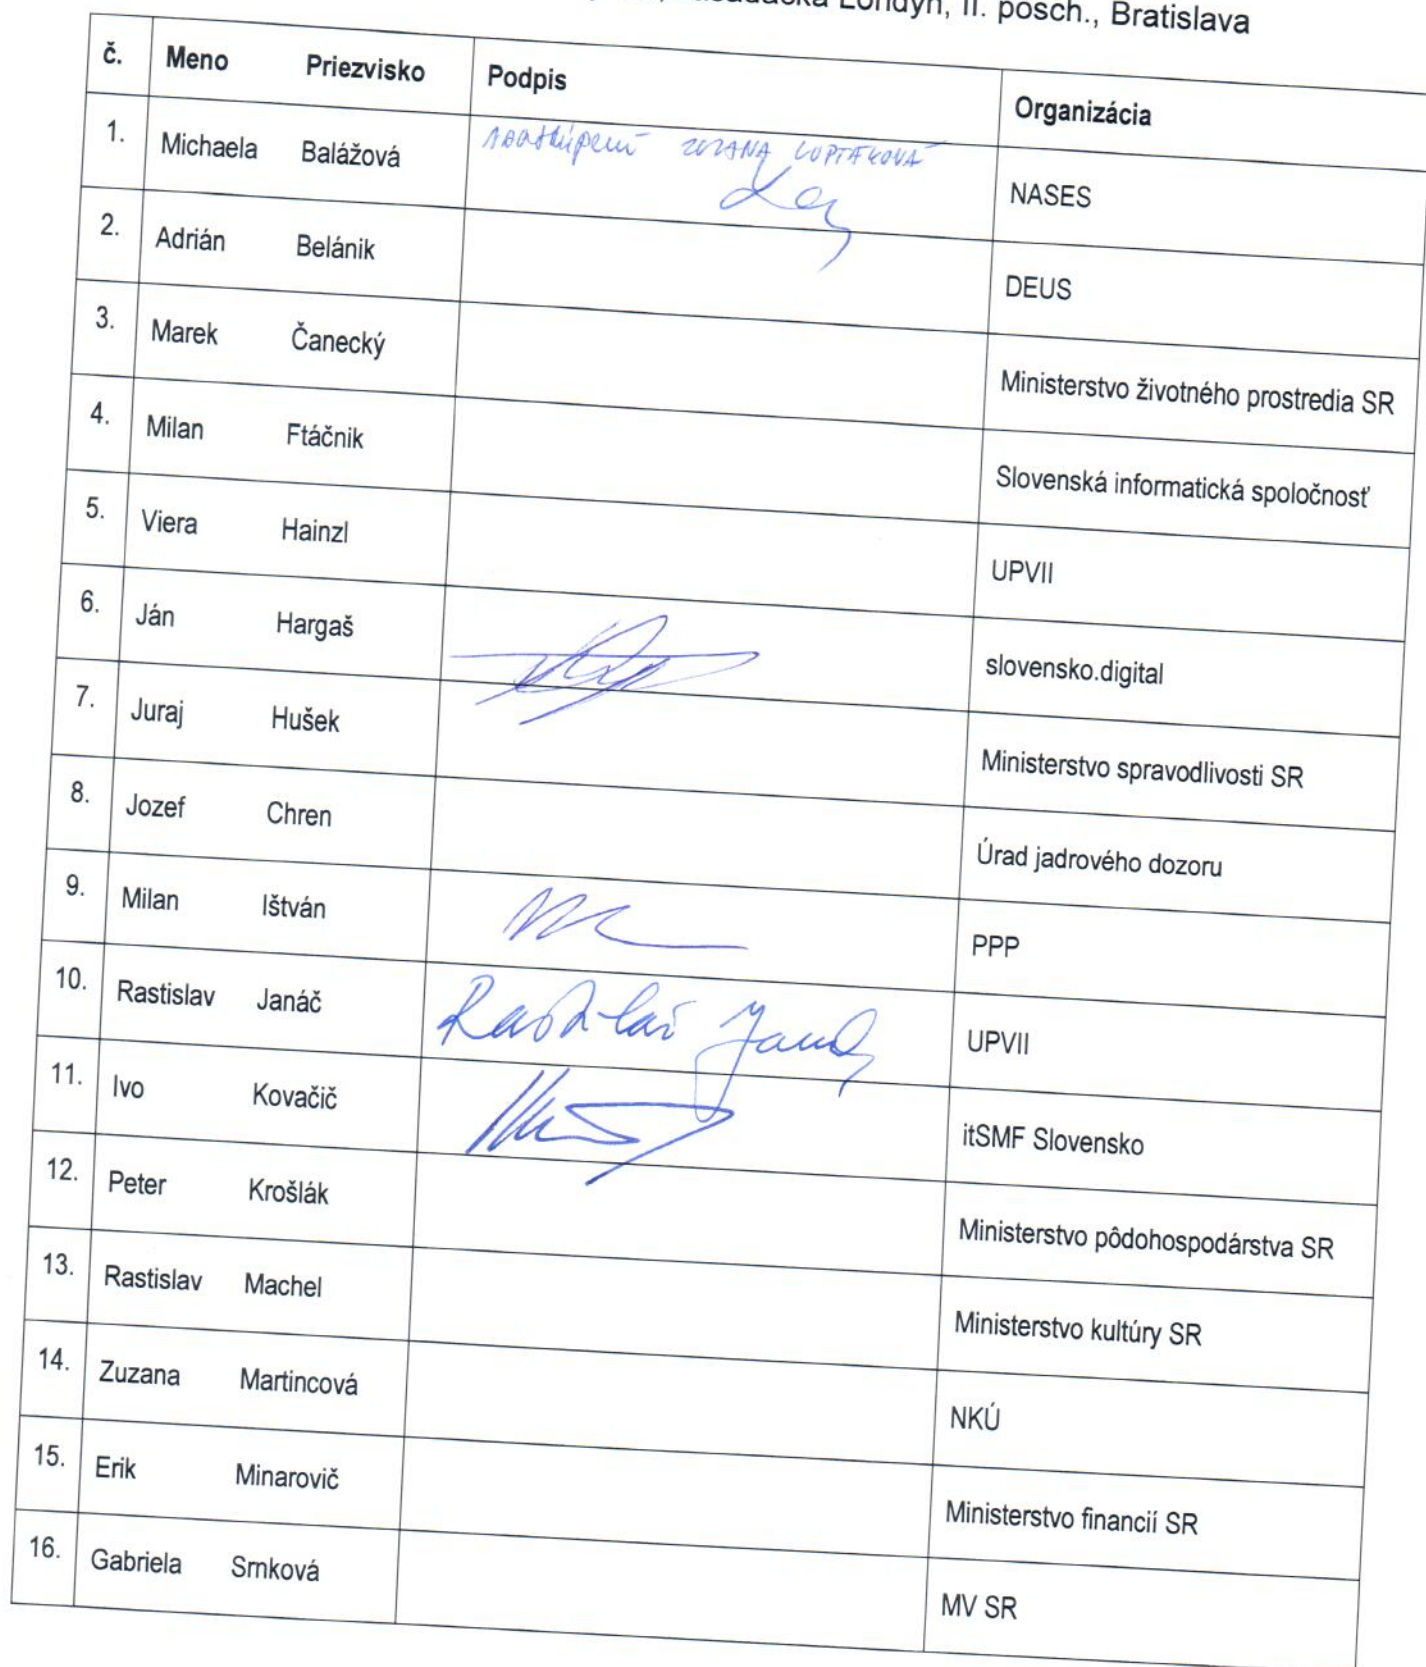 Londýn, II. posch., Bratislava
č. Meno Priezvisko Podpis Organizácia
1. Michaela Balážová ZUZANA LUPTÁKOVÁ NASES
2. Adrián Belánik DEUS
3. Marek Čanecký Ministerstvo životného prostredia SR
4. Milan Ftáčnik Slovenská informatická spoločnosť
5. Viera Hainzl UPVII
6. Ján Hargaš slovensko.digital
7. Juraj Hušek Ministerstvo spravodlivosti SR
8. Jozef Chren Úrad jadrového dozoru
9. Milan Ištván PPP
10. Rastislav Janáč Rastislav Janáč UPVII
11. Ivo Kovačič itSMF Slovensko
12. Peter Krošlák Ministerstvo pôdohospodárstva SR
13. Rastislav Machel Ministerstvo kultúry SR
14. Zuzana Martincová NKÚ
15. Erik Minarovič Ministerstvo financií SR
16. Gabriela Srnková MV SR